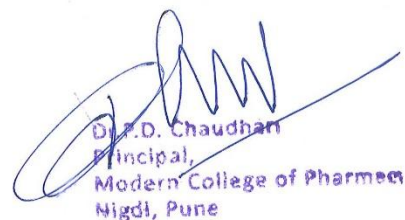 Dr.P.D. Chaudhari
Principal,
Modern College of Pharmacy
Nigdi, Pune